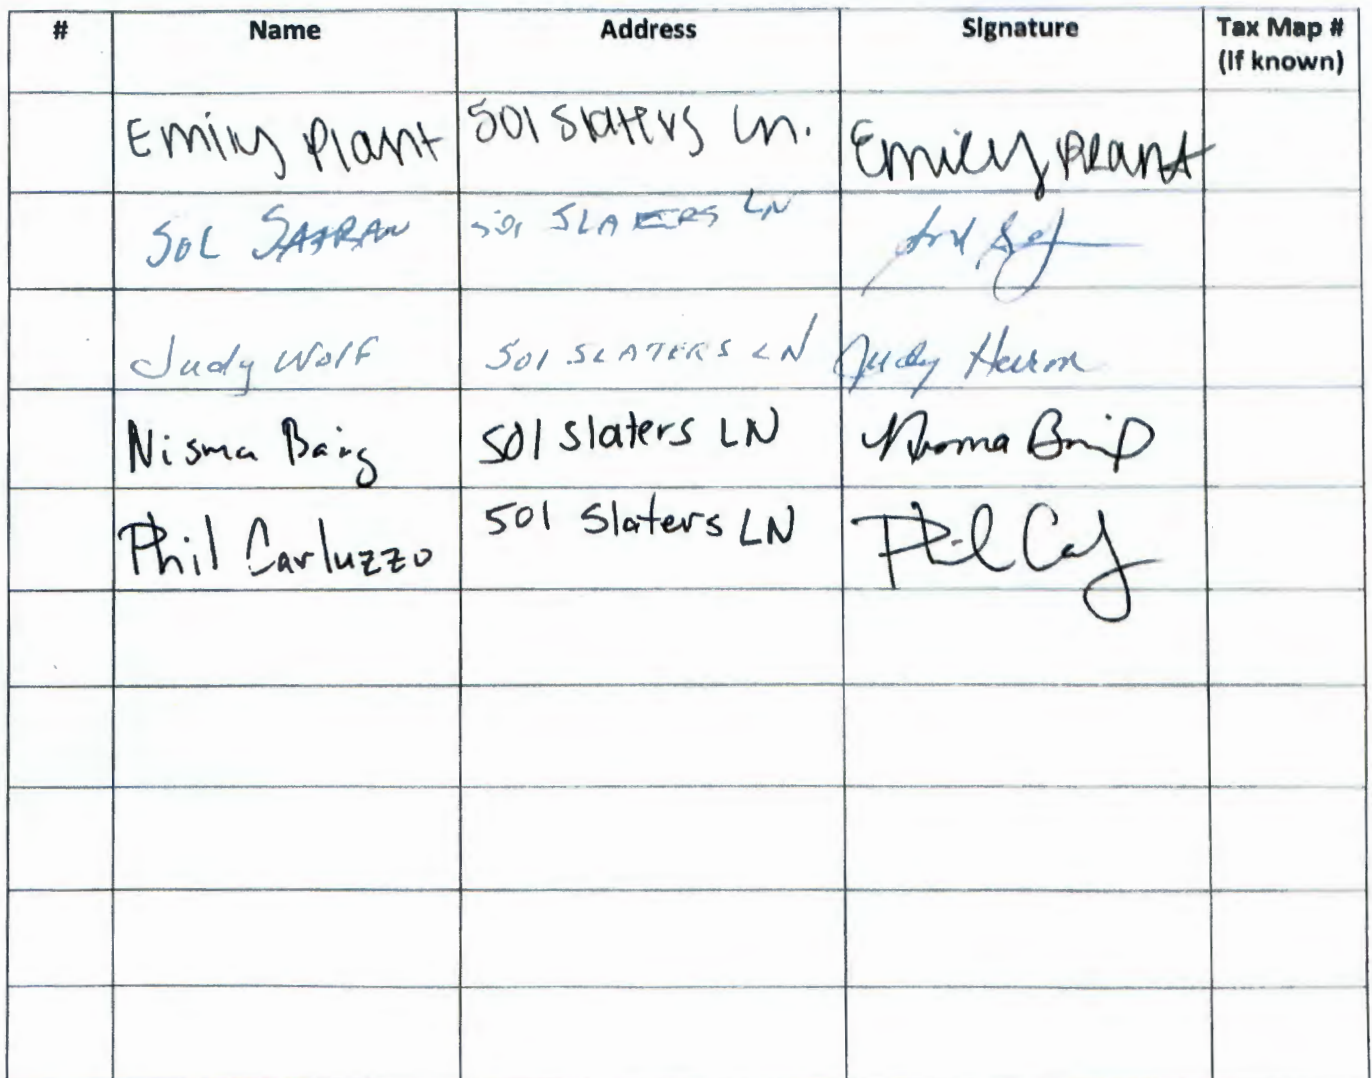 # Name Address Signature Tax Map #
(If known)
Emily Plant 501 Slaters Ln. Emily Plant
SOL 501 SLATERS LN
Judy Wolf 501 SLATERS LN Judy
Nisma Baig 501 Slaters LN Nisma Baig
Phil Carluzzo 501 Slaters LN Phil